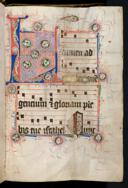 Lumen ad
gentium & gloriam ple
bis tue israhel